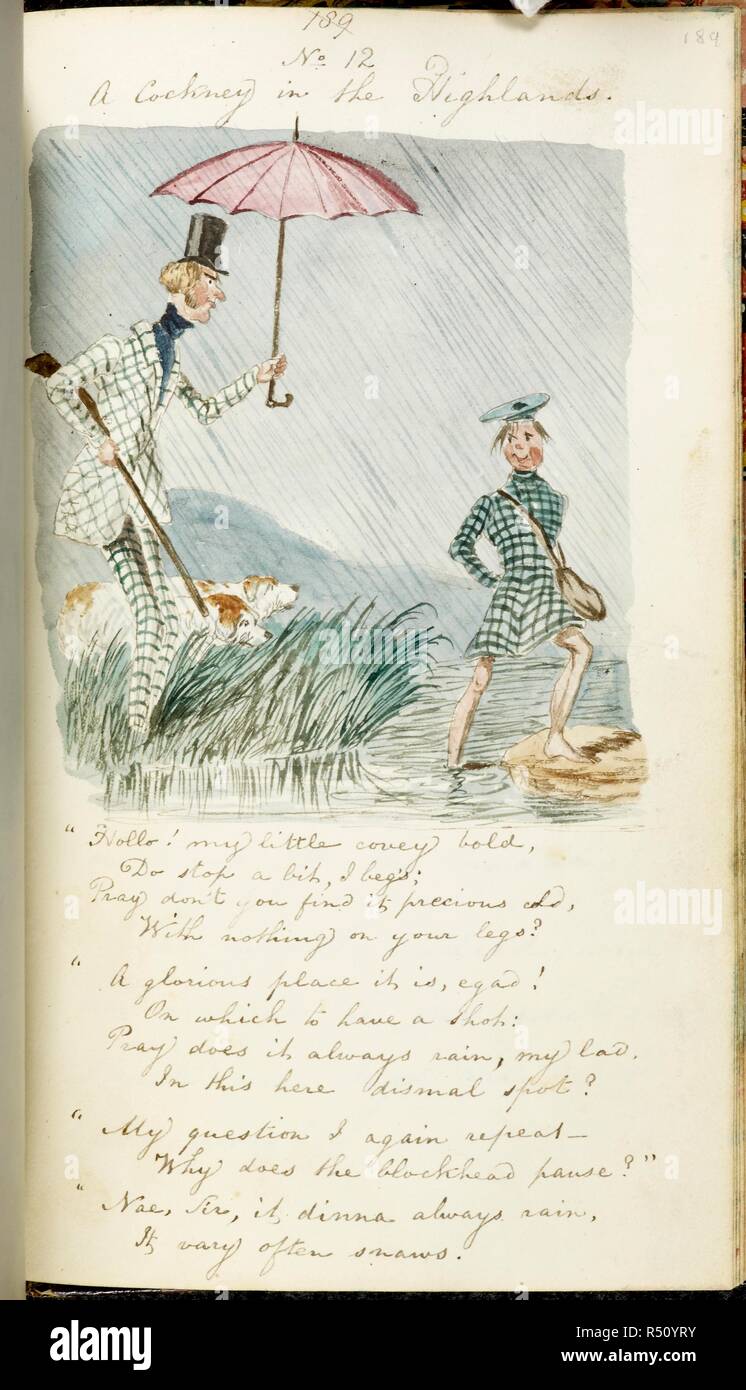 189
189
No 12
A Cockney in the Highlands.
"Hollo! my little covey bold,
Do stop a bit, I begs;
Pray don't you find it precious cold,
With nothing on your legs?
"A glorious place it is, egad!
On which to have a shot:
Pray does it always rain, my lad.
In this here dismal spot?
"My question I again repeat—
Why does the blockhead pause?"
"Nae, Sir, it dinna always rain,
It vary often snaws.
alamy
alamy
alamy
Image ID: R50YRY
www.alamy.com